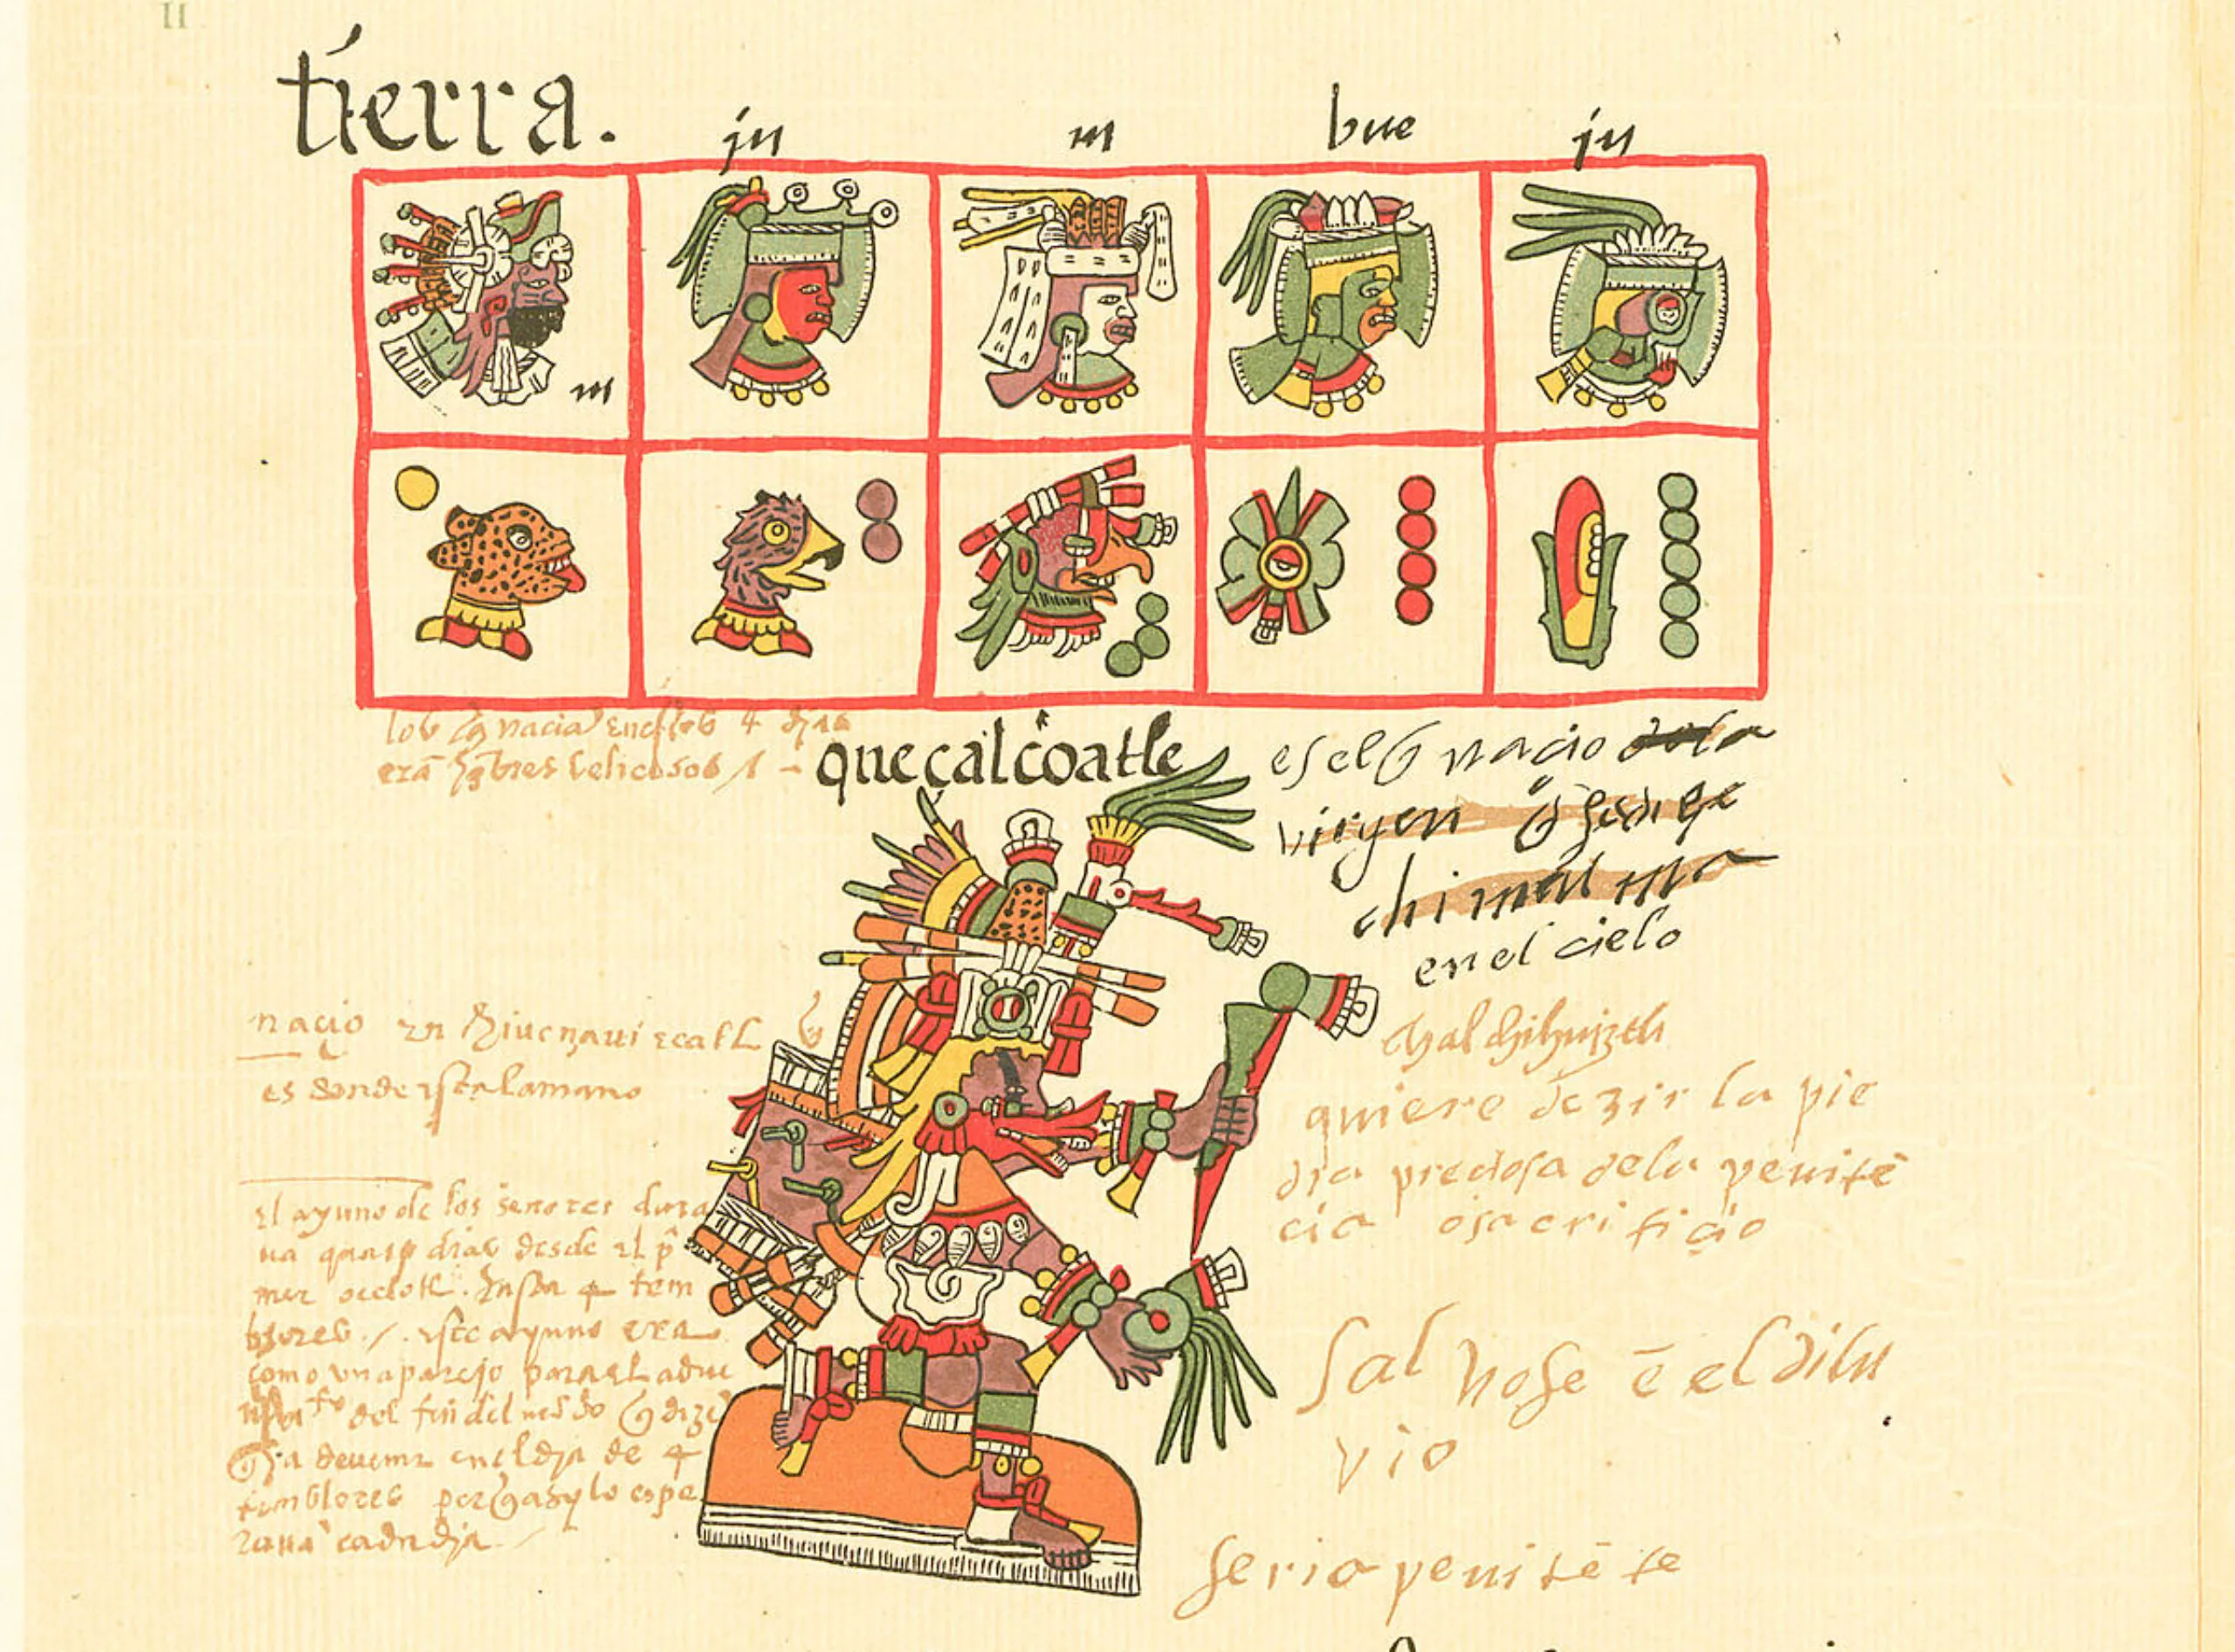 II
tierra.
ju m bue ju
m
los q̄ naciā en estos 4 dias
erā hōbres belicosos / –
queçalcoatle
es el q̄ nacio dela
virgen q̄ se dize
chimalma
en el cielo
nacio en chiucnaui ecatl q̄
es donde esta la mano
chalchihuiztli
quiere dezir la pie
dra preciosa dela penitē
cia o sacrificio
el ayuno de los señores dura
ua quatro dias desde el pº
mer ocelotl. hasta 4 tem
blores /. este ayuno era
como un aparejo para el adue
nimito del fin del mūdo q̄ dizē
q̄ a de uenir en el dja de 4
temblores por q̄ asy lo espe
rauā cada dja
Saluose ē el dilu
vio
Serio penitēte